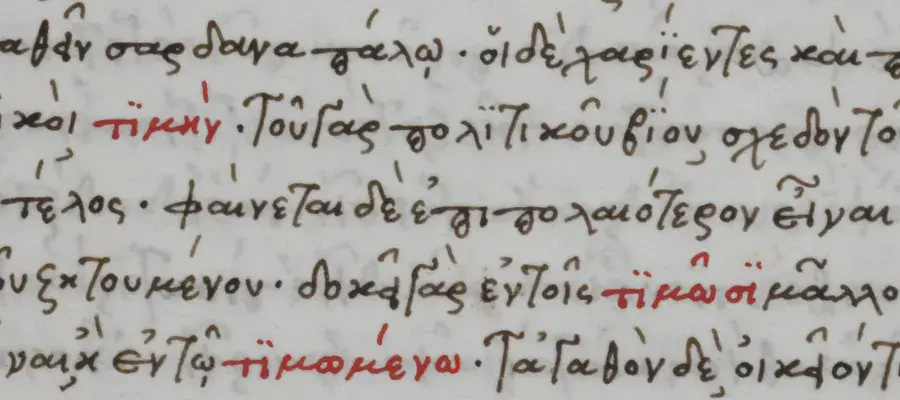 αθεῖν σαρδαναπάλῳ · οἱ δὲ χαρΐεντες καὶ π
ικοὶ τϊμὴν · Τοῦ γὰρ πολϊτικοῦ βΐου, σχεδὸν το
τέλος · φαίνεται δὲ ἐπιπολαιότερον εἶναι
υ ζητουμένου · δοκεῖ γὰρ ἐν τοῖς τϊμῶσϊ μᾶλλο
ναι, ἢ ἐν τῷ τϊμωμένω · Τἀγαθὸν δὲ, οἰκεῖόν τ